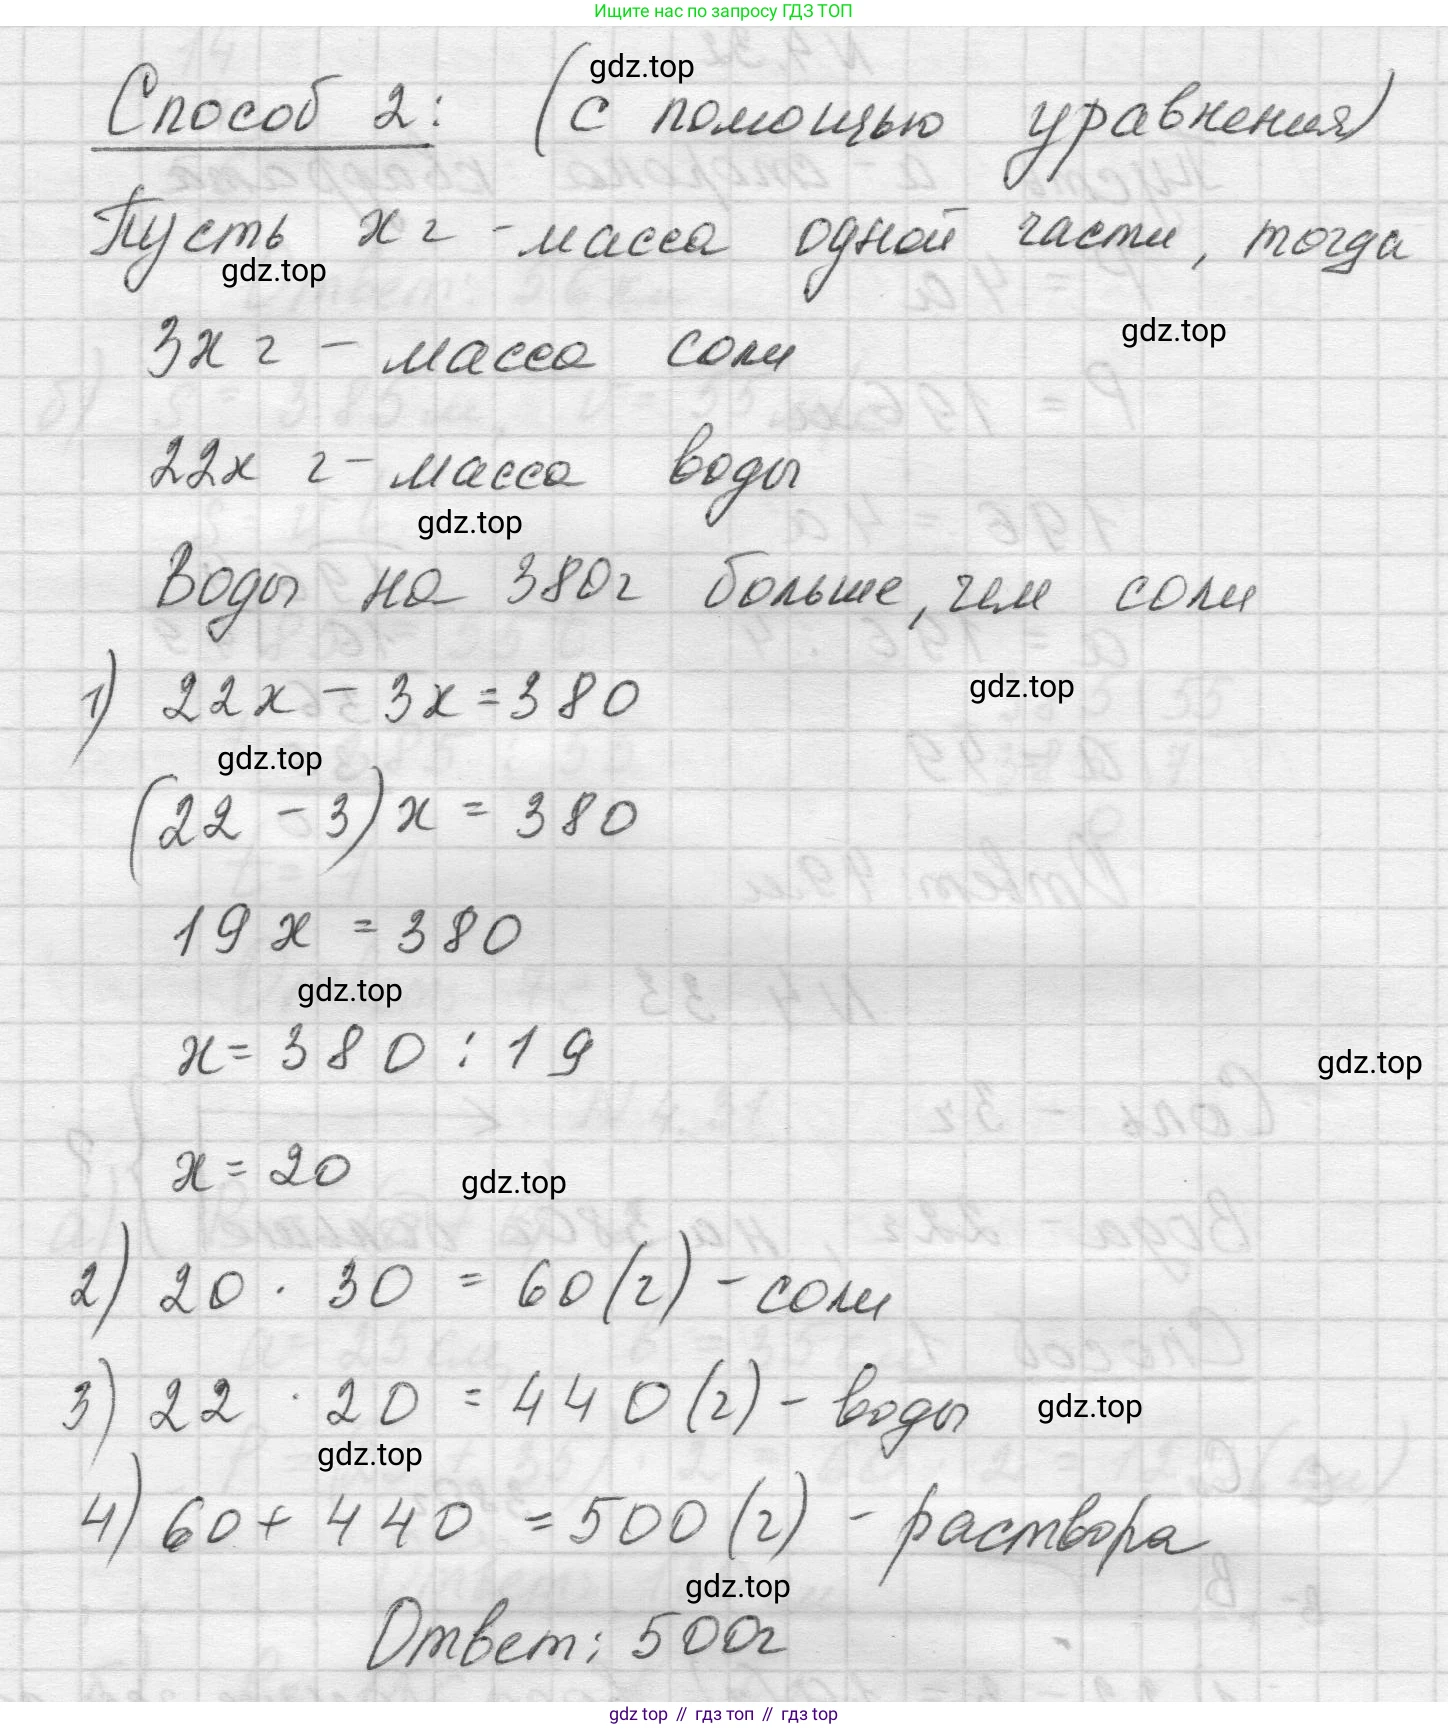 Ищите нас по запросу ГДЗ ТОП
gdz.top
Способ 2: (с помощью уравнения)
Пусть x г - масса одной части, тогда
gdz.top
gdz.top
3x г - масса соли
22x г - масса воды
gdz.top
Воды на 380г больше, чем соли
1) 22x - 3x = 380
gdz.top
gdz.top
(22 - 3)x = 380
19x = 380
gdz.top
x = 380 : 19
gdz.top
x = 20
gdz.top
2) 20 · 30 = 60 (г) - соли
3) 22 · 20 = 440 (г) - воды
gdz.top
gdz.top
4) 60 + 440 = 500 (г) - раствора
gdz.top
Ответ: 500г
gdz top // гдз топ // гдз top